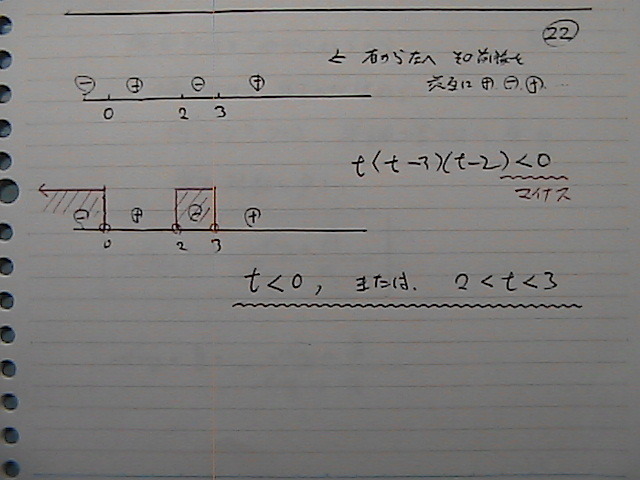 22
← 右から左へ その前後を
交互に ⊕, ⊖, ⊕, …
⊖ ⊕ ⊖ ⊕
0 2 3
t(t-3)(t-2)<0
マイナス
⊖ ⊕ ⊖ ⊕
0 2 3
t<0, または. 2<t<3